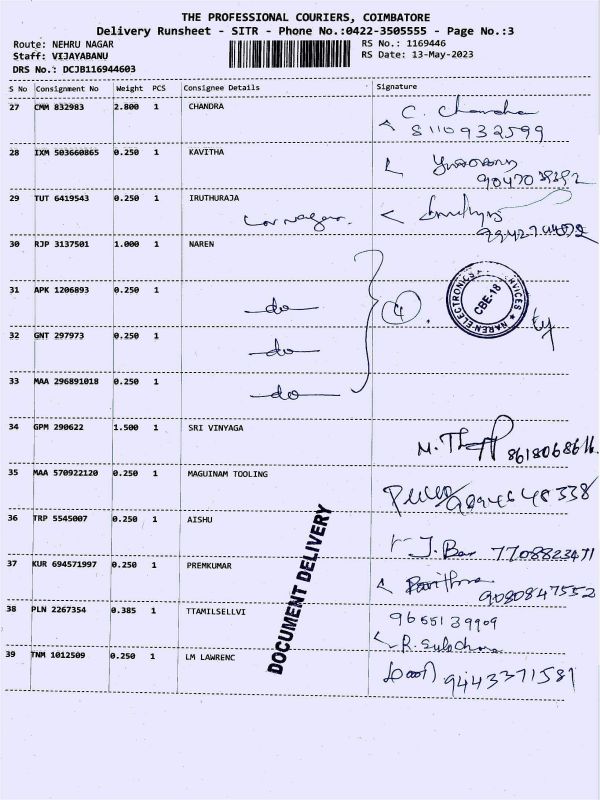 THE PROFESSIONAL COURIERS, COIMBATORE
Delivery Runsheet - SITR - Phone No.:0422-3505555 - Page No.:3
Route: NEHRU NAGAR RS No.: 1169446
Staff: VIJAYABANU RS Date: 13-May-2023
DRS No.: DCJB116944603
S No Consignment No Weight PCS Consignee Details Signature
27 CMM 832983 2.800 1 CHANDRA C. Chandra
8110932599
28 IXM 503660865 0.250 1 KAVITHA
29 TUT 6419543 0.250 1 IRUTHURAJA
30 RJP 3137501 1.000 1 NAREN
31 APK 1206893 0.250 1 do 4
NAREN ELECTRONICS SERVICES
CBE-18
32 GNT 297973 0.250 1 do
33 MAA 296891018 0.250 1 do
34 GPM 290622 1.500 1 SRI VINYAGA
35 MAA 570922120 0.250 1 MAGUINAM TOOLING 9094648338
36 TRP 5545007 0.250 1 AISHU
7708823471
37 KUR 694571997 0.250 1 PREMKUMAR Pavithra
9080847552
38 PLN 2267354 0.385 1 TTAMILSELLVI 9655139909
R. Sulochana
39 TNM 1012509 0.250 1 LM LAWRENC 9443371581
DOCUMENT DELIVERY